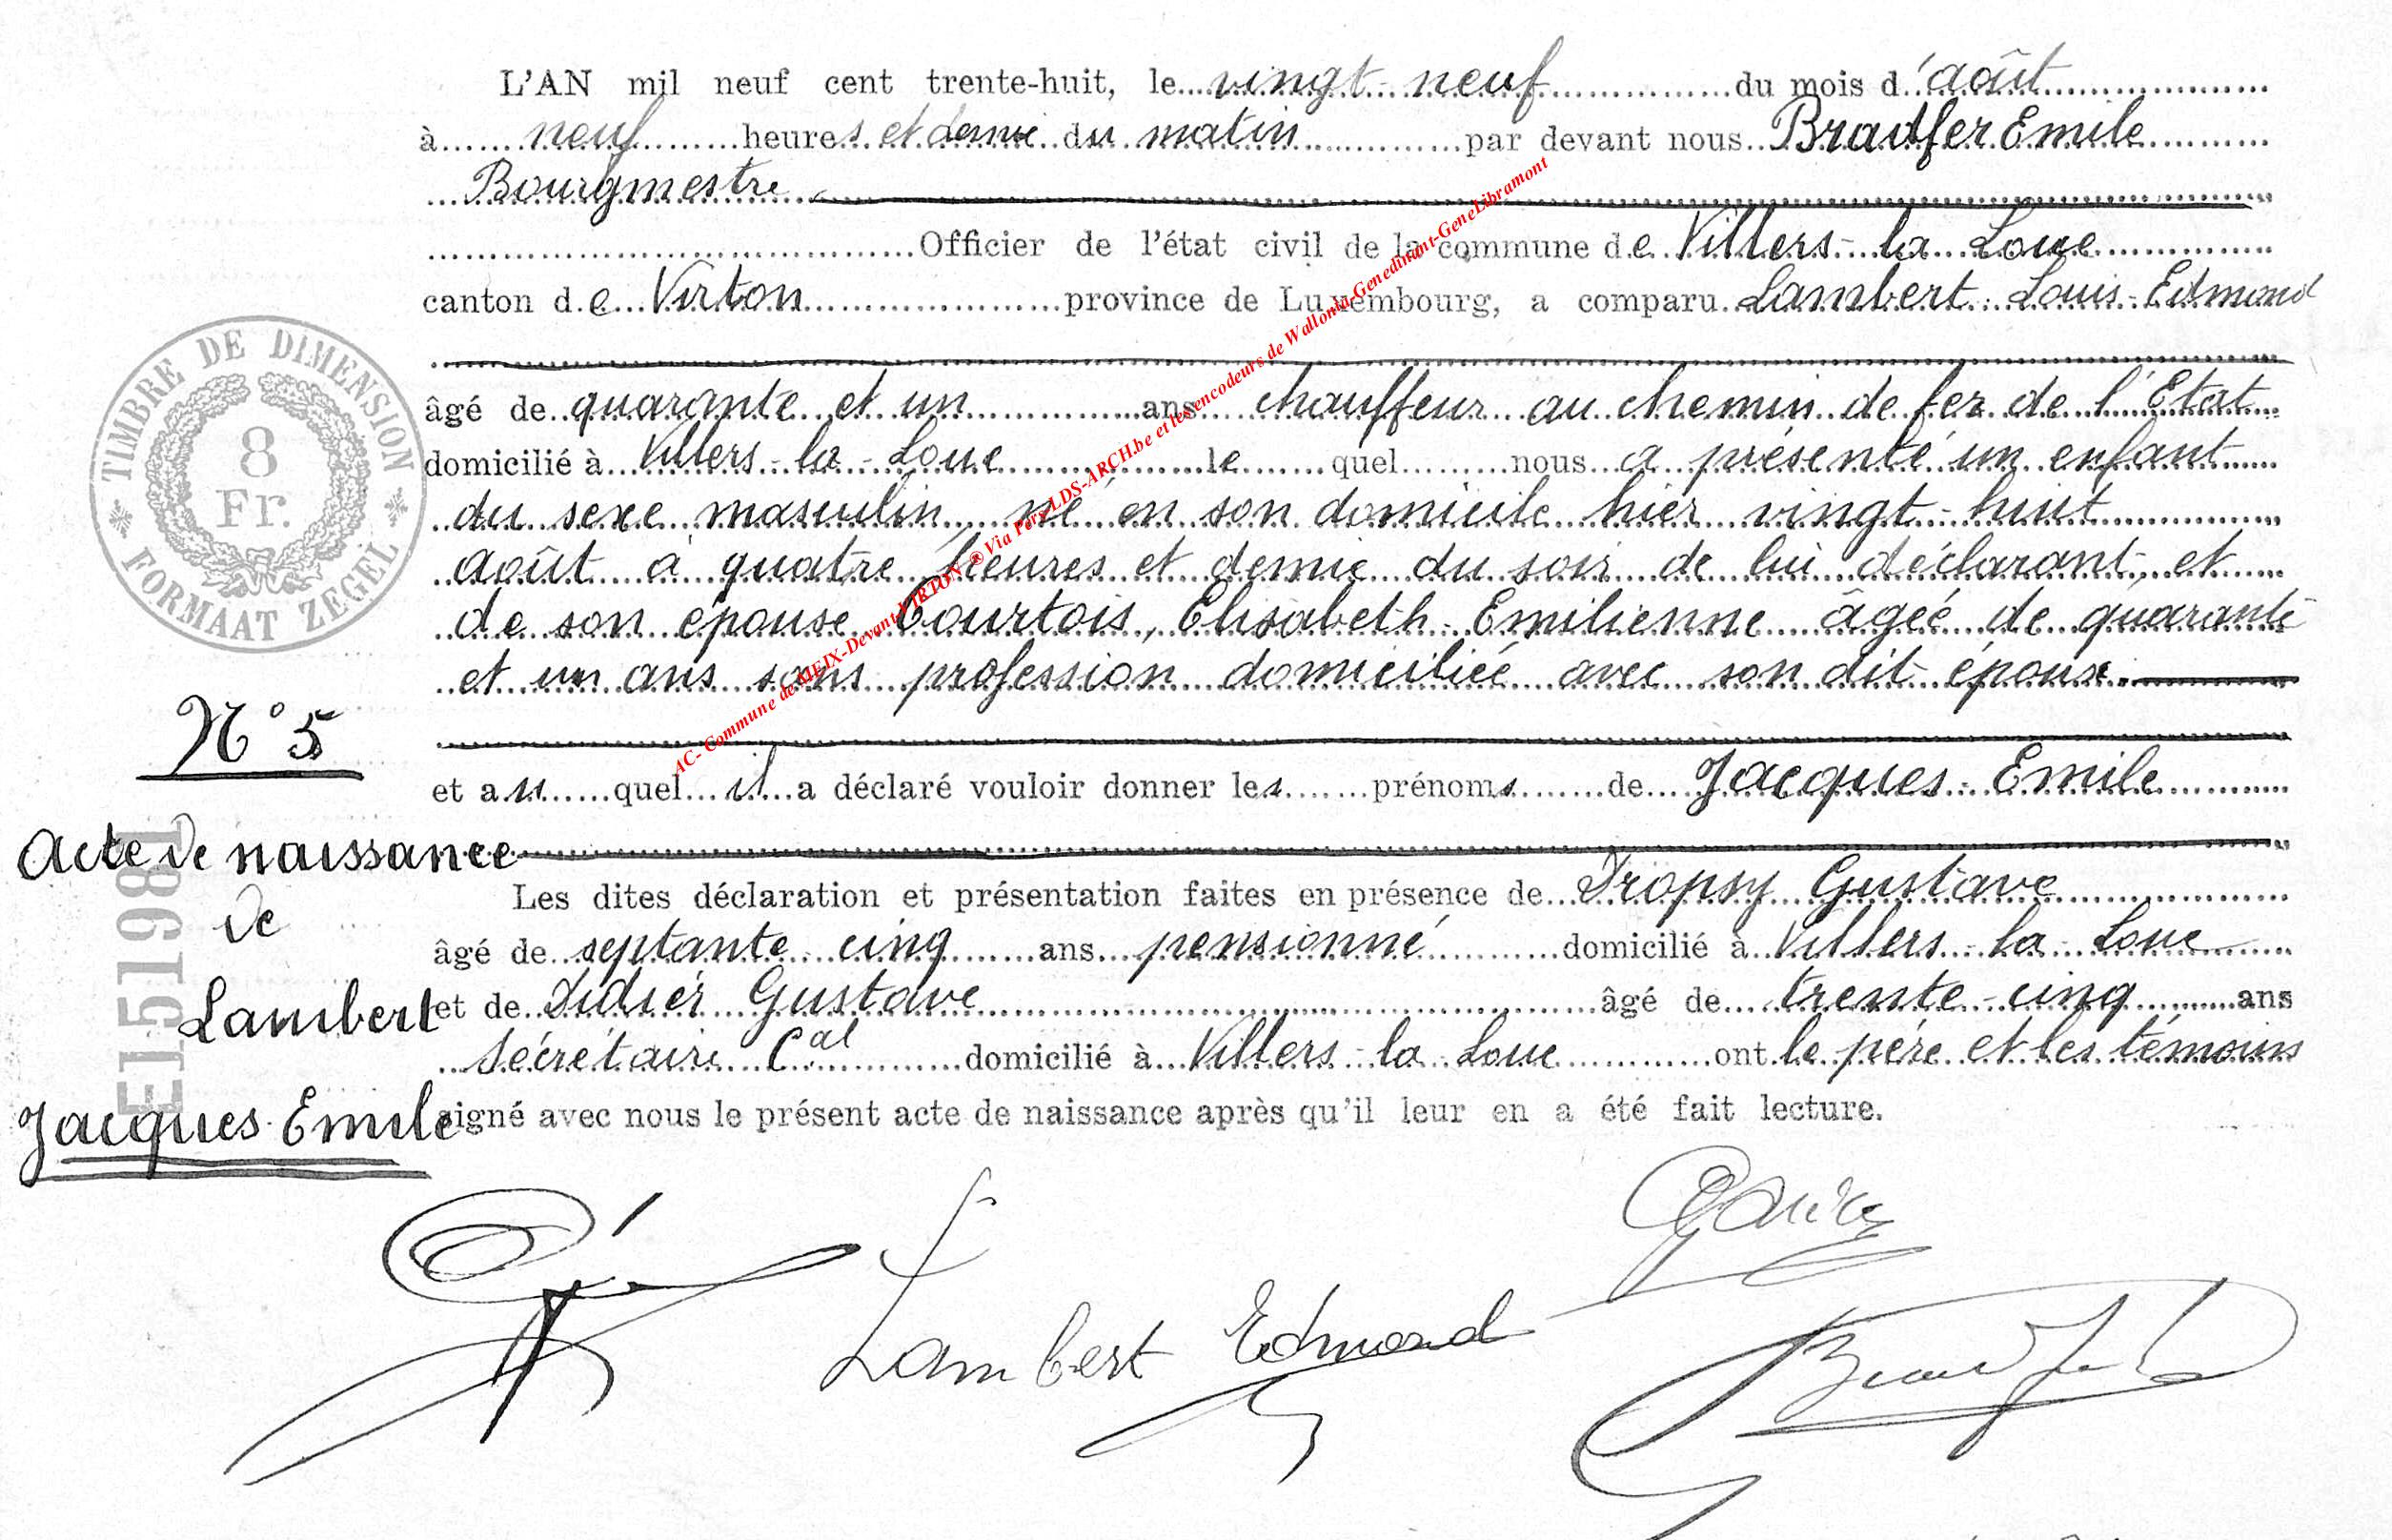 L'AN mil neuf cent trente-huit, le vingt-neuf du mois d'août
à neuf heures et demie du matin par devant nous Braufer Emile
Bourgmestre
Officier de l'état civil de la commune de Villers-la-Loue
canton de Virton province de Luxembourg, a comparu Lambert Louis-Edmond
âgé de quarante et un ans chauffeur au chemin de fer de l'Etat
domicilié à Villers-la-Loue le quel nous a présenté un enfant
du sexe masculin, né en son domicile hier vingt-huit
août à quatre heures et demie du soir de lui déclarant, et
de son épouse Courtois, Elisabeth-Emilienne âgée de quarante
et un ans sans profession domiciliée avec son dit époux
et au quel il a déclaré vouloir donner les prénoms de Jacques-Emile
Les dites déclaration et présentation faites en présence de Tropsy Gustave
âgé de septante cinq ans pensionné domicilié à Villers-la-Loue
et de Didier Gustave âgé de trente-cinq ans
Secrétaire Cal domicilié à Villers-la-Loue ont le père et les témoins
signé avec nous le présent acte de naissance après qu'il leur en a été fait lecture.
TIMBRE DE DIMENSION
8
Fr.
FORMAAT ZEGEL
N° 5
Acte de naissance
de
Lambert
Jacques-Emile
E151981
AC- Commune de MEIX-Devant-VIRTON ® Via Pers LDS-ARCH.be et les encodeurs de Wallonia-Genedinant-GeneLibramont
Lambert Edmond